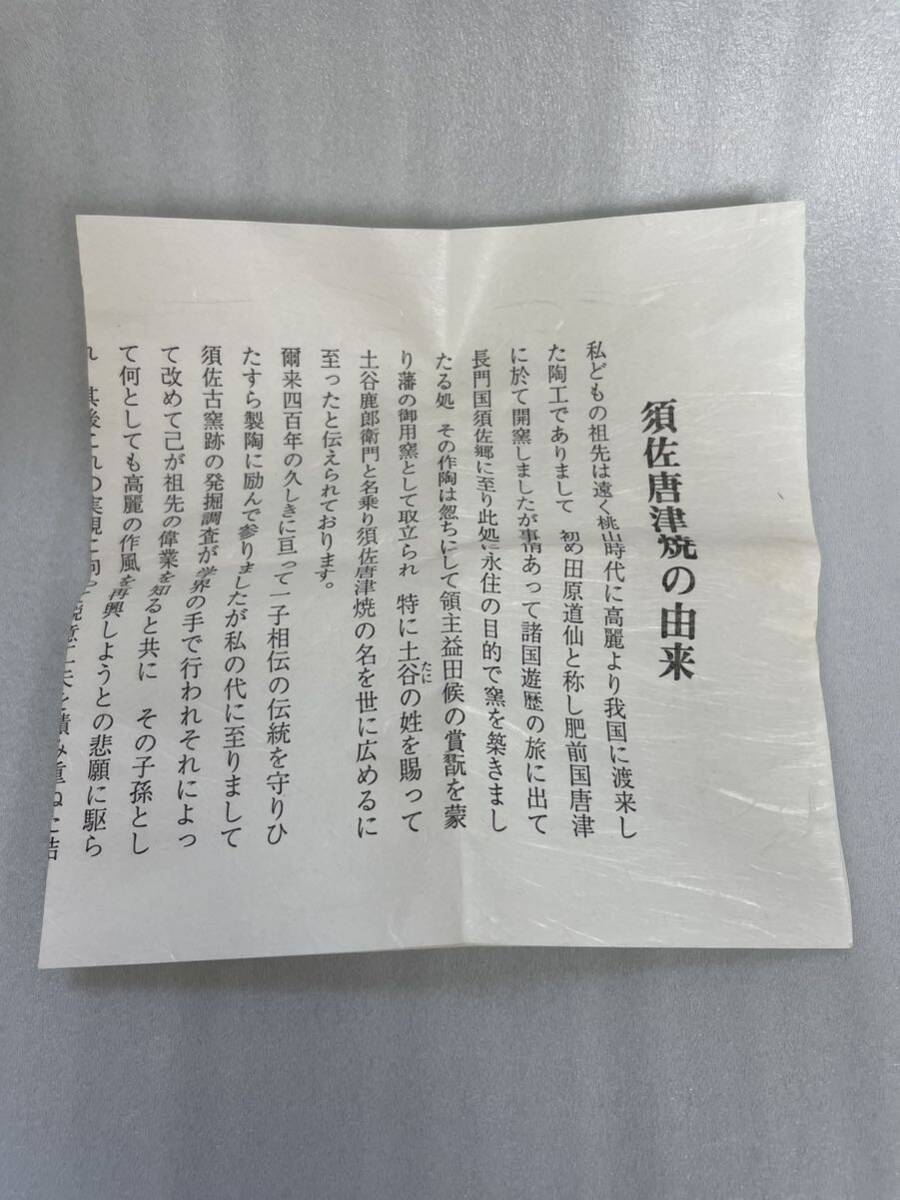 須佐唐津焼の由来
私どもの祖先は遠く桃山時代に高麗より我国に渡来し
た陶工でありまして 初め田原道仙と称し肥前国唐津
に於て開窯しましたが事情あって諸国遊歴の旅に出て
長門国須佐郷に至り此処に永住の目的で窯を築きまし
たる処 その作陶は忽ちにして領主益田候の賞翫を蒙
り藩の御用窯として取立られ 特に土谷の姓を賜って
たに
土谷鹿郎衛門と名乗り須佐唐津焼の名を世に広めるに
至ったと伝えられております。
爾来四百年の久しきに亘って一子相伝の伝統を守りひ
たすら製陶に励んで参りましたが私の代に至りまして
須佐古窯跡の発掘調査が学界の手で行われそれによっ
て改めて己が祖先の偉業を知ると共に その子孫とし
て何としても高麗の作風を再興しようとの悲願に駆ら
れ 其後これの実現に向